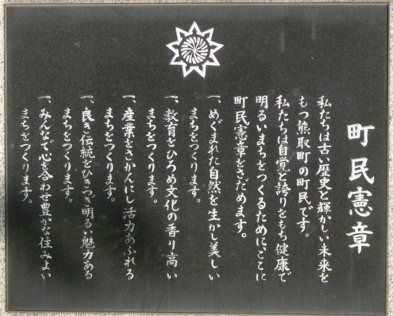 町民憲章
私たちは古い歴史と輝かしい未来を
もつ熊取町の町民です。
私たちは自覚と誇りをもち健康で
明るいまちをつくるためにここに
町民憲章をさだめます。
一、めぐまれた自然を生かし美しい
まちをつくります。
一、教育をひろめ文化の香り高い
まちをつくります。
一、産業をさかんにし活力あふれる
まちをつくります。
一、良き伝統をひきつぎ明るい魅力ある
まちをつくります。
一、みんなで心を合わせ豊かな住みよい
まちをつくります。